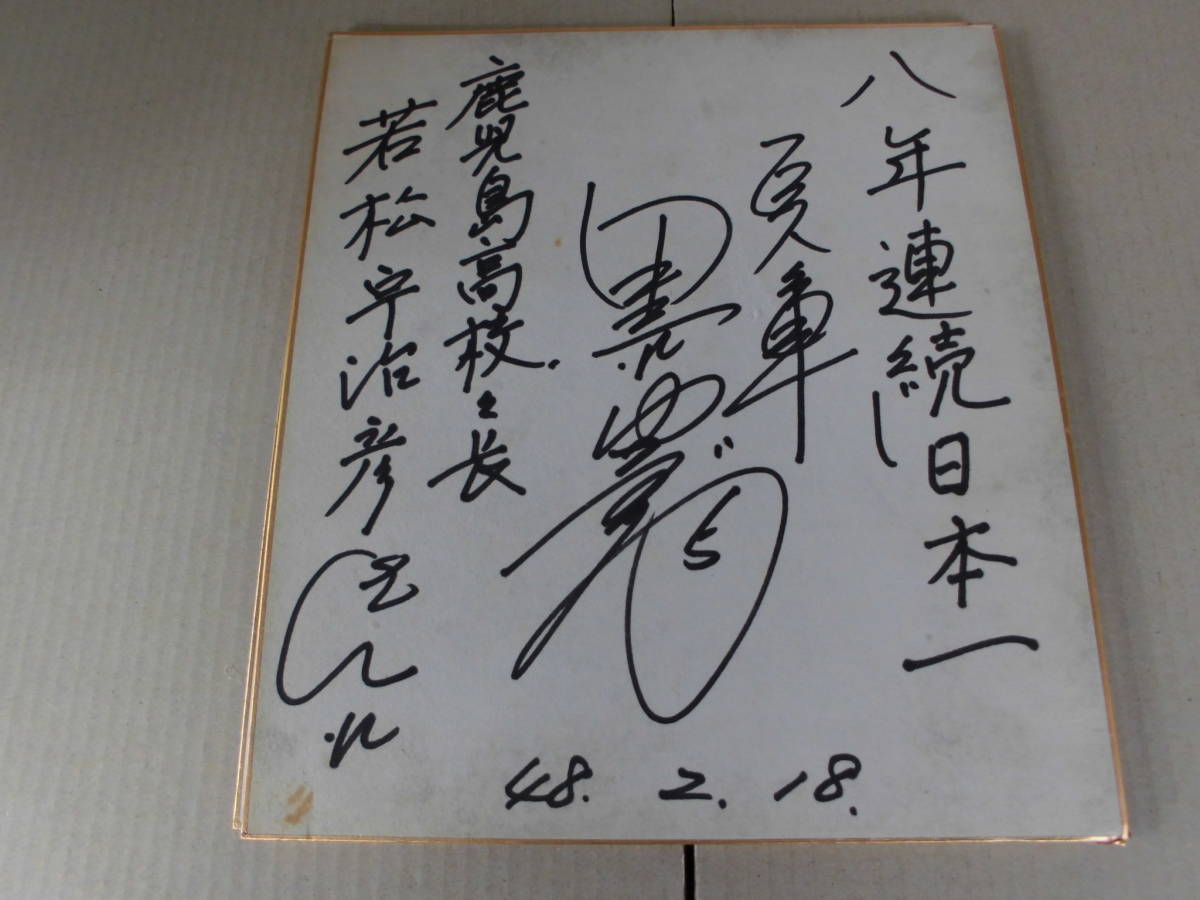 八年連続日本一
巨人軍
5
鹿児島高校々長
若松宇治彦
48. 2. 18.